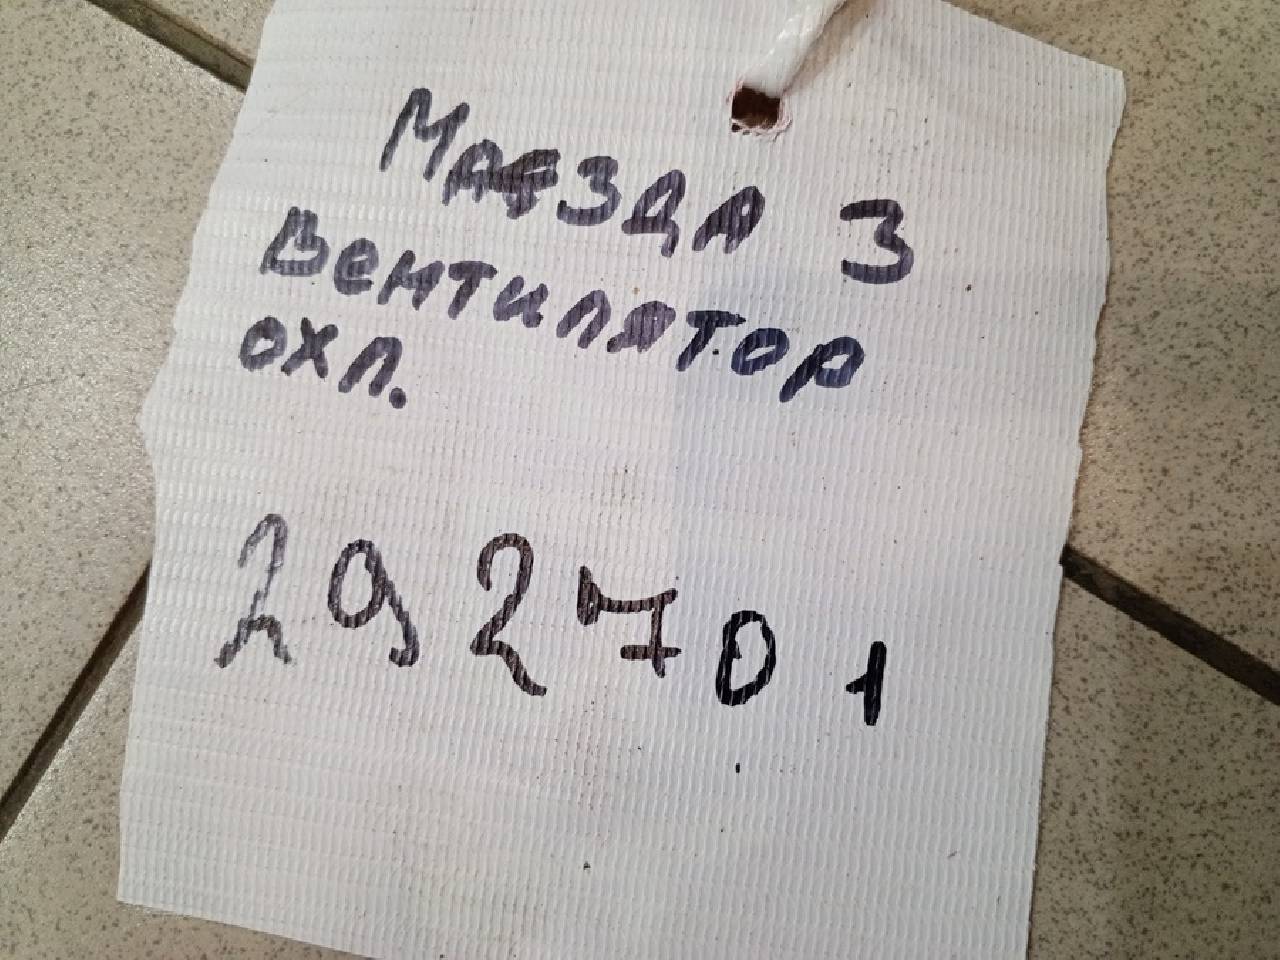 Мазда 3
Вентилятор
охл.
292701